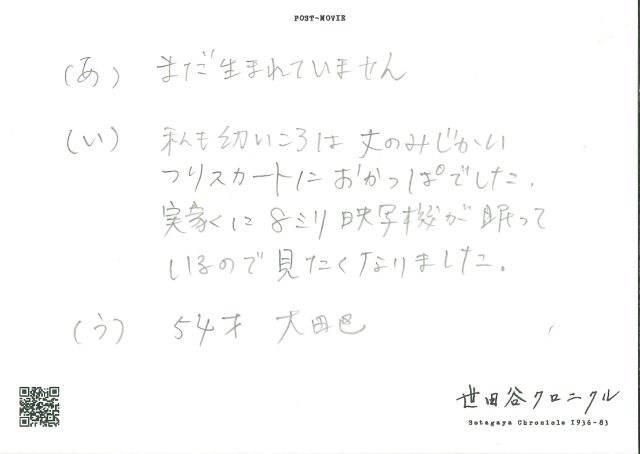 POST-MOVIE
(あ) まだ生まれていません
(い) 私も幼いころは丈のみじかい
つりスカートにおかっぱでした。
実家に8ミリ映写機が眠って
いるので見たくなりました。
(う) 54才 大田区
世田谷クロニクル
Setagaya Chronicle 1936-83